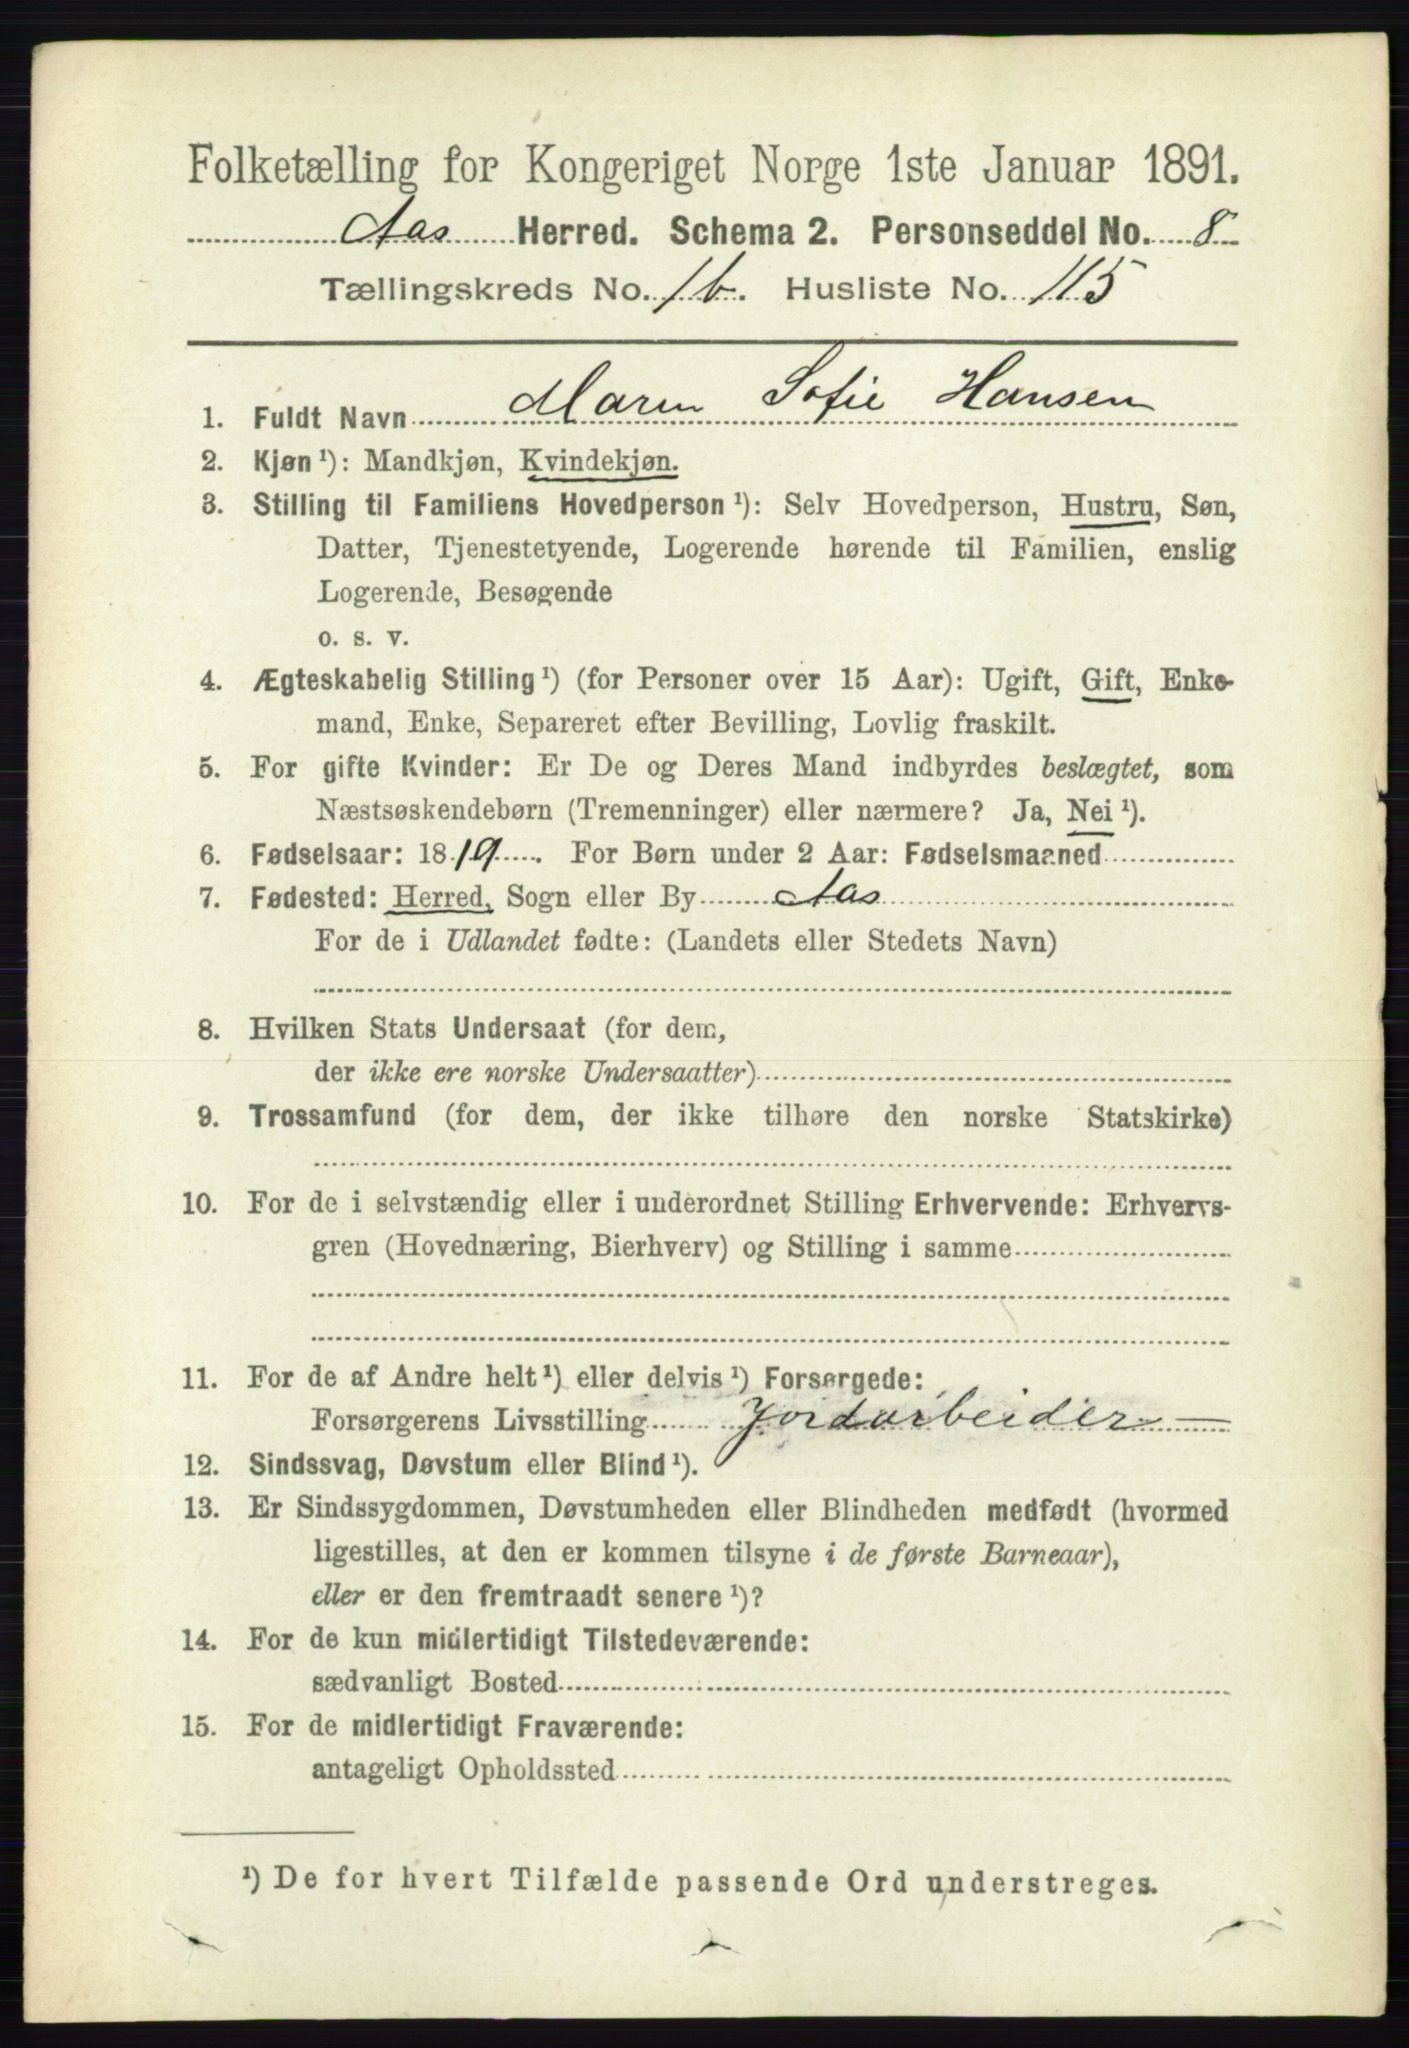 Folketælling for Kongeriget Norge 1ste Januar 1891.
Aas Herred. Schema 2. Personseddel No. 8
Tællingskreds No. 1b. Husliste No. 115
1. Fuldt Navn Maren Sofie Hansen
2. Kjøn¹): Mandkjøn, Kvindekjøn.
3. Stilling til Familiens Hovedperson¹): Selv Hovedperson, Hustru, Søn,
Datter, Tjenestetyende, Logerende hørende til Familien, enslig
Logerende, Besøgende
o. s. v.
4. Ægteskabelig Stilling¹) (for Personer over 15 Aar): Ugift, Gift, Enke-
mand, Enke, Separeret efter Bevilling, Lovlig fraskilt.
5. For gifte Kvinder: Er De og Deres Mand indbyrdes beslægtet, som
Næstsøskendebørn (Tremenninger) eller nærmere? Ja, Nei¹).
6. Fødselsaar: 1819. For Børn under 2 Aar: Fødselsmaaned
7. Fødested: Herred, Sogn eller By Aas
For de i Udlandet fødte: (Landets eller Stedets Navn)
8. Hvilken Stats Undersaat (for dem,
der ikke ere norske Undersaatter)
9. Trossamfund (for dem, der ikke tilhøre den norske Statskirke)
10. For de i selvstændig eller i underordnet Stilling Erhvervende: Erhvervs-
gren (Hovednæring, Bierhverv) og Stilling i samme
11. For de af Andre helt¹) eller delvis¹) Forsørgede:
Forsørgerens Livsstilling Jordarbeider
12. Sindssvag, Døvstum eller Blind¹).
13. Er Sindssygdommen, Døvstumheden eller Blindheden medfødt (hvormed
ligestilles, at den er kommen tilsyne i de første Barneaar),
eller er den fremtraadt senere¹)?
14. For de kun midlertidigt Tilstedeværende:
sædvanligt Bosted
15. For de midlertidigt Fraværende:
antageligt Opholdssted
¹) De for hvert Tilfælde passende Ord understreges.